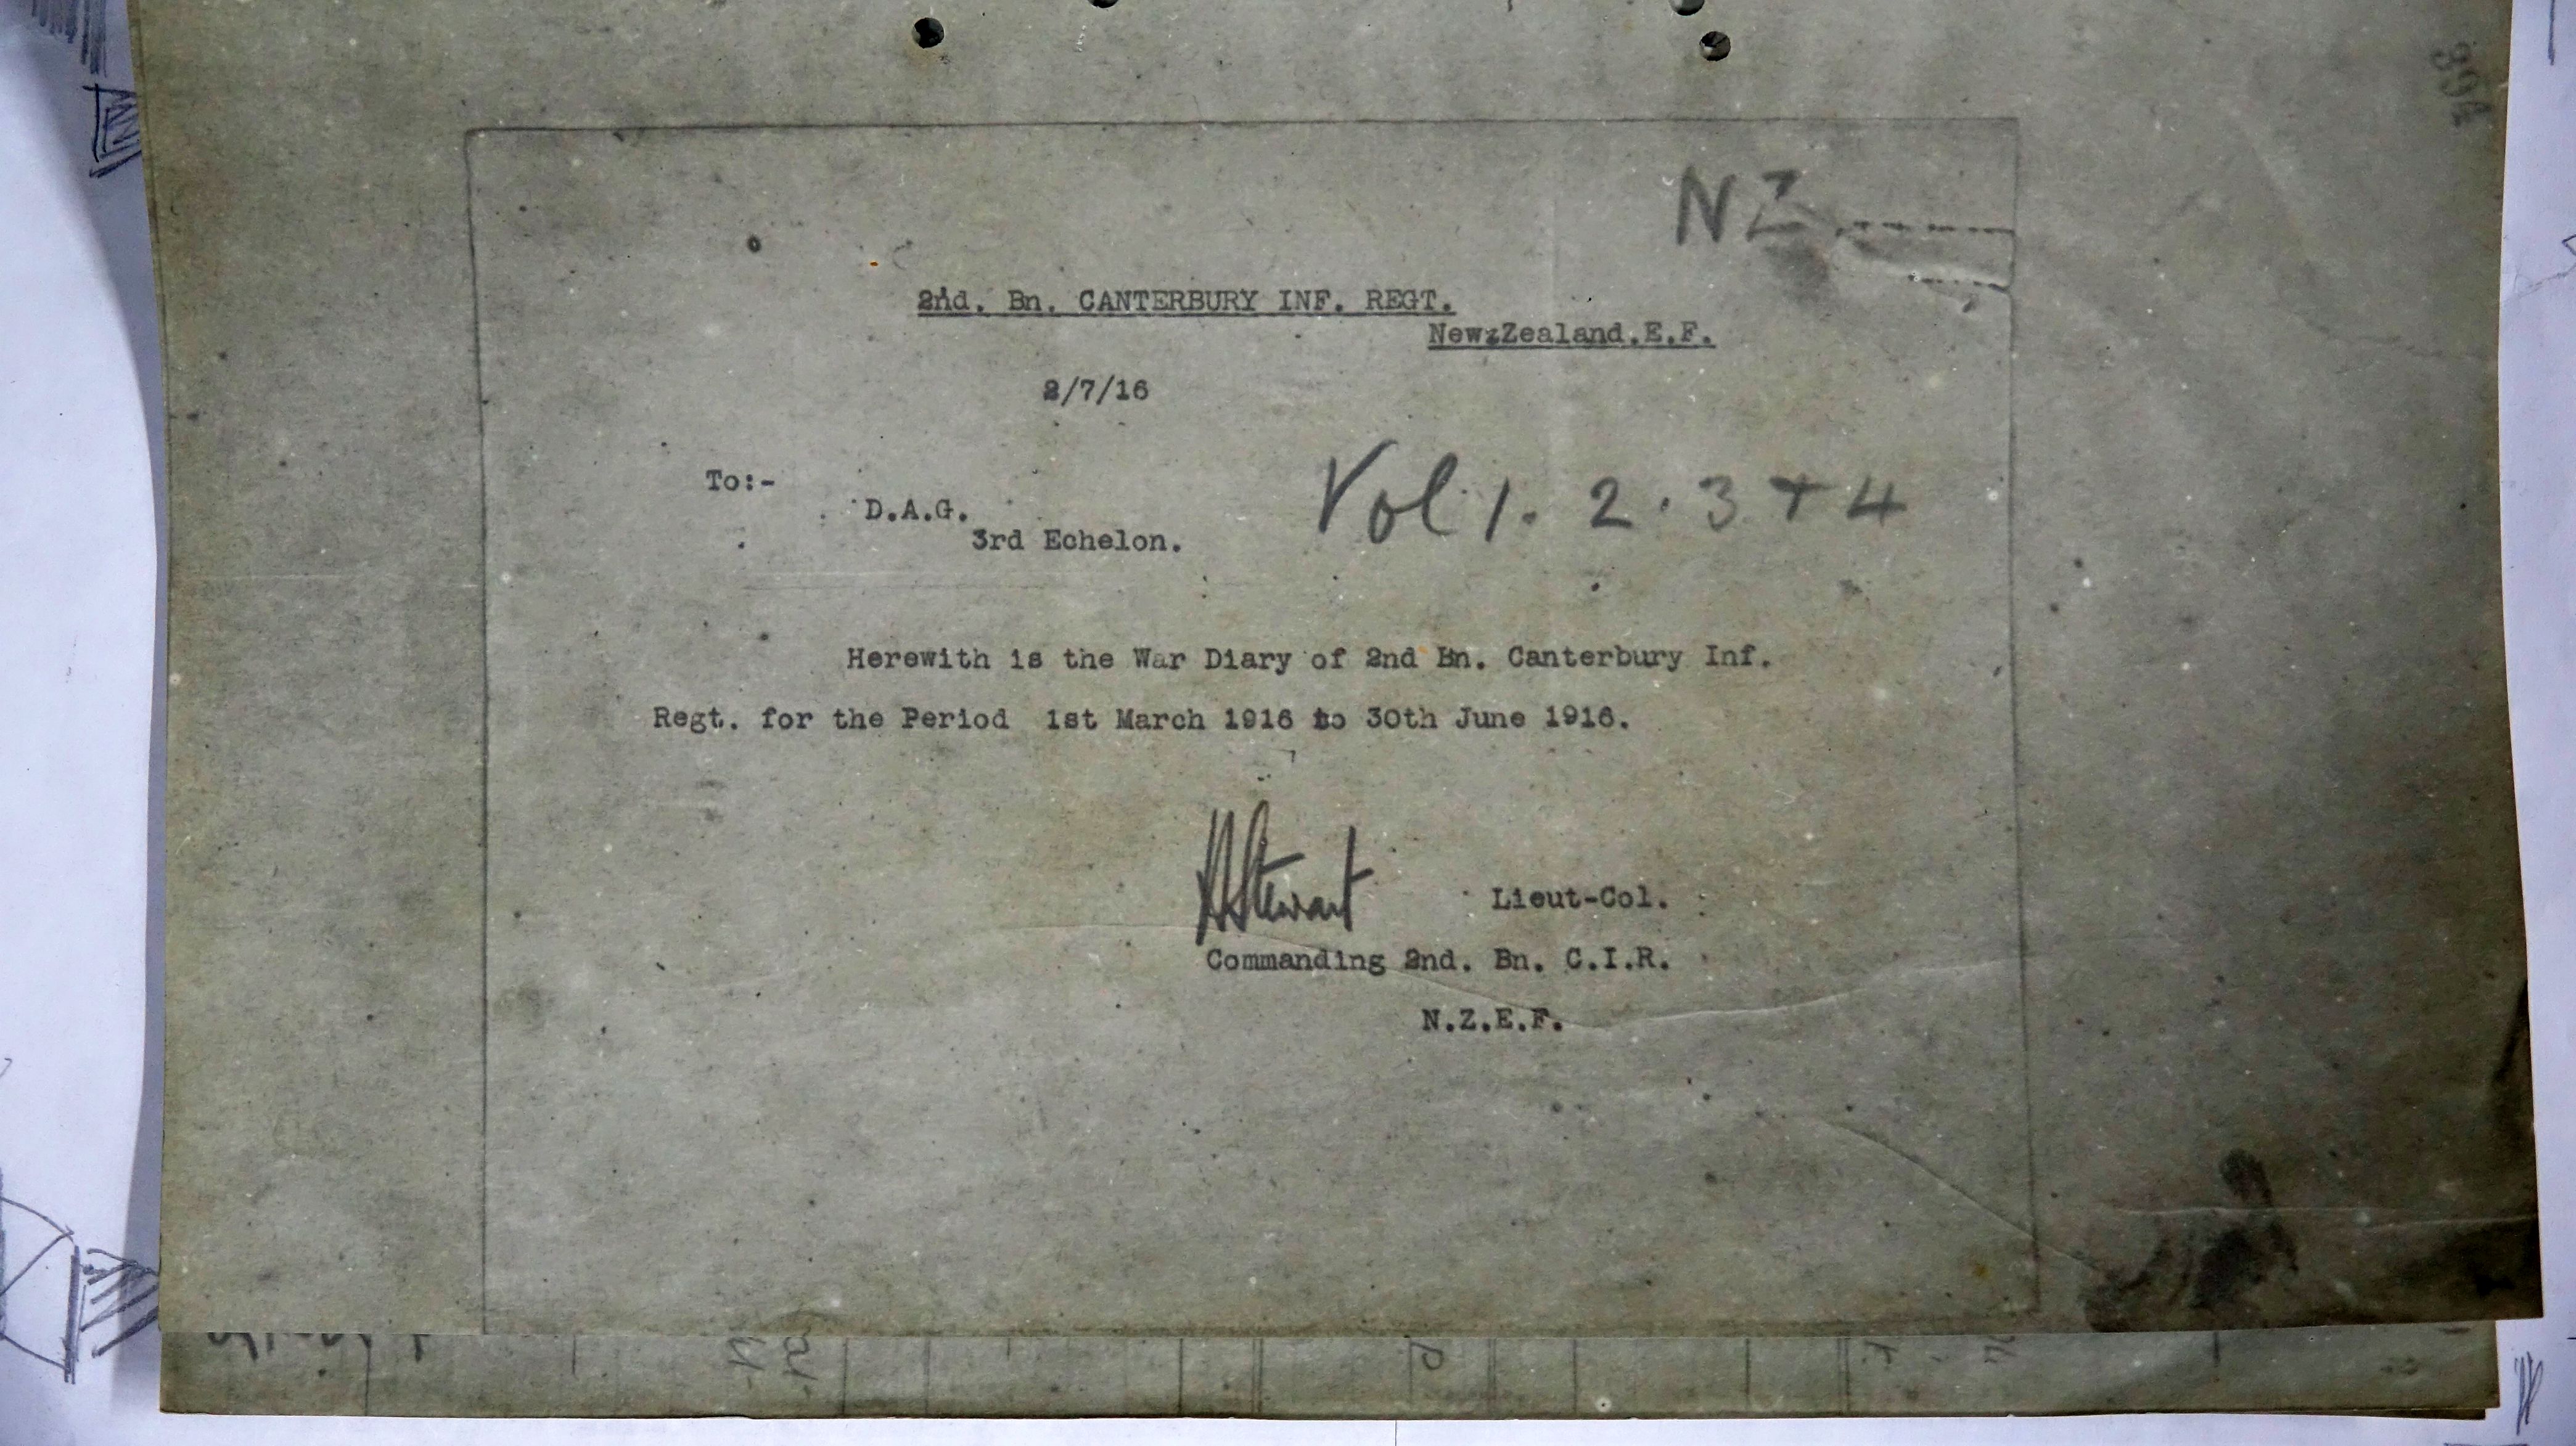 39A
NZ
2nd. Bn. CANTERBURY INF. REGT.
NewzZealand.E.F.
2/7/16
To:-
D.A.G.
3rd Echelon.
Vol 1. 2. 3 + 4
Herewith is the War Diary of 2nd Bn. Canterbury Inf.
Regt. for the Period 1st March 1916 to 30th June 1916.
HStewart Lieut-Col.
Commanding 2nd. Bn. C.I.R.
N.Z.E.F.